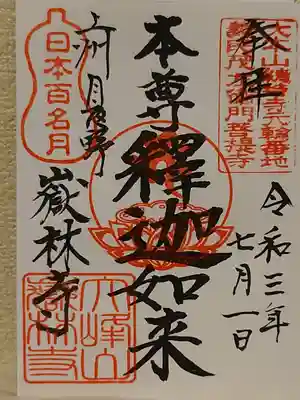 奉拝
令和三年
七月一日
本尊
釋迦如来
上州 月夜野
嶽林寺
日本百名月
大峰山
嶽林寺